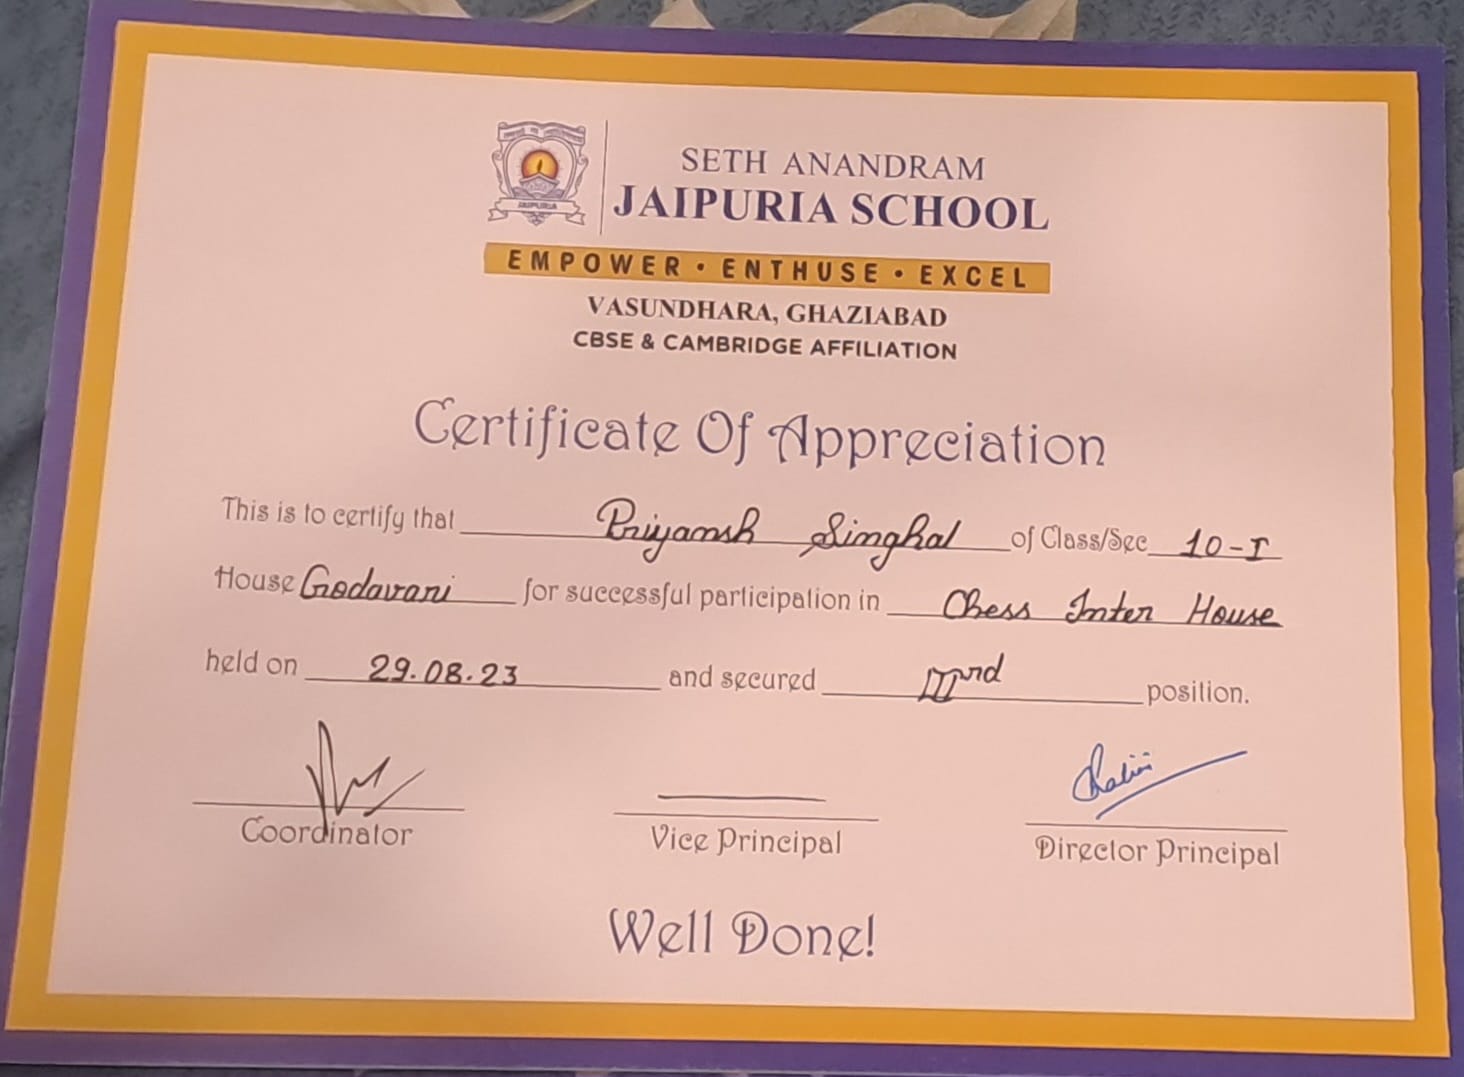 JAIPURIA
SETH ANANDRAM
JAIPURIA SCHOOL
EMPOWER • ENTHUSE • EXCEL
VASUNDHARA, GHAZIABAD
CBSE & CAMBRIDGE AFFILIATION
Certificate Of Appreciation
This is to certify that Priyansh Singhal of Class/Sec 10-I
House Godavari for successful participation in Chess Inter House
held on 29.08.23 and secured IIIrd position.
Coordinator Vice Principal Director Principal
Well Done!